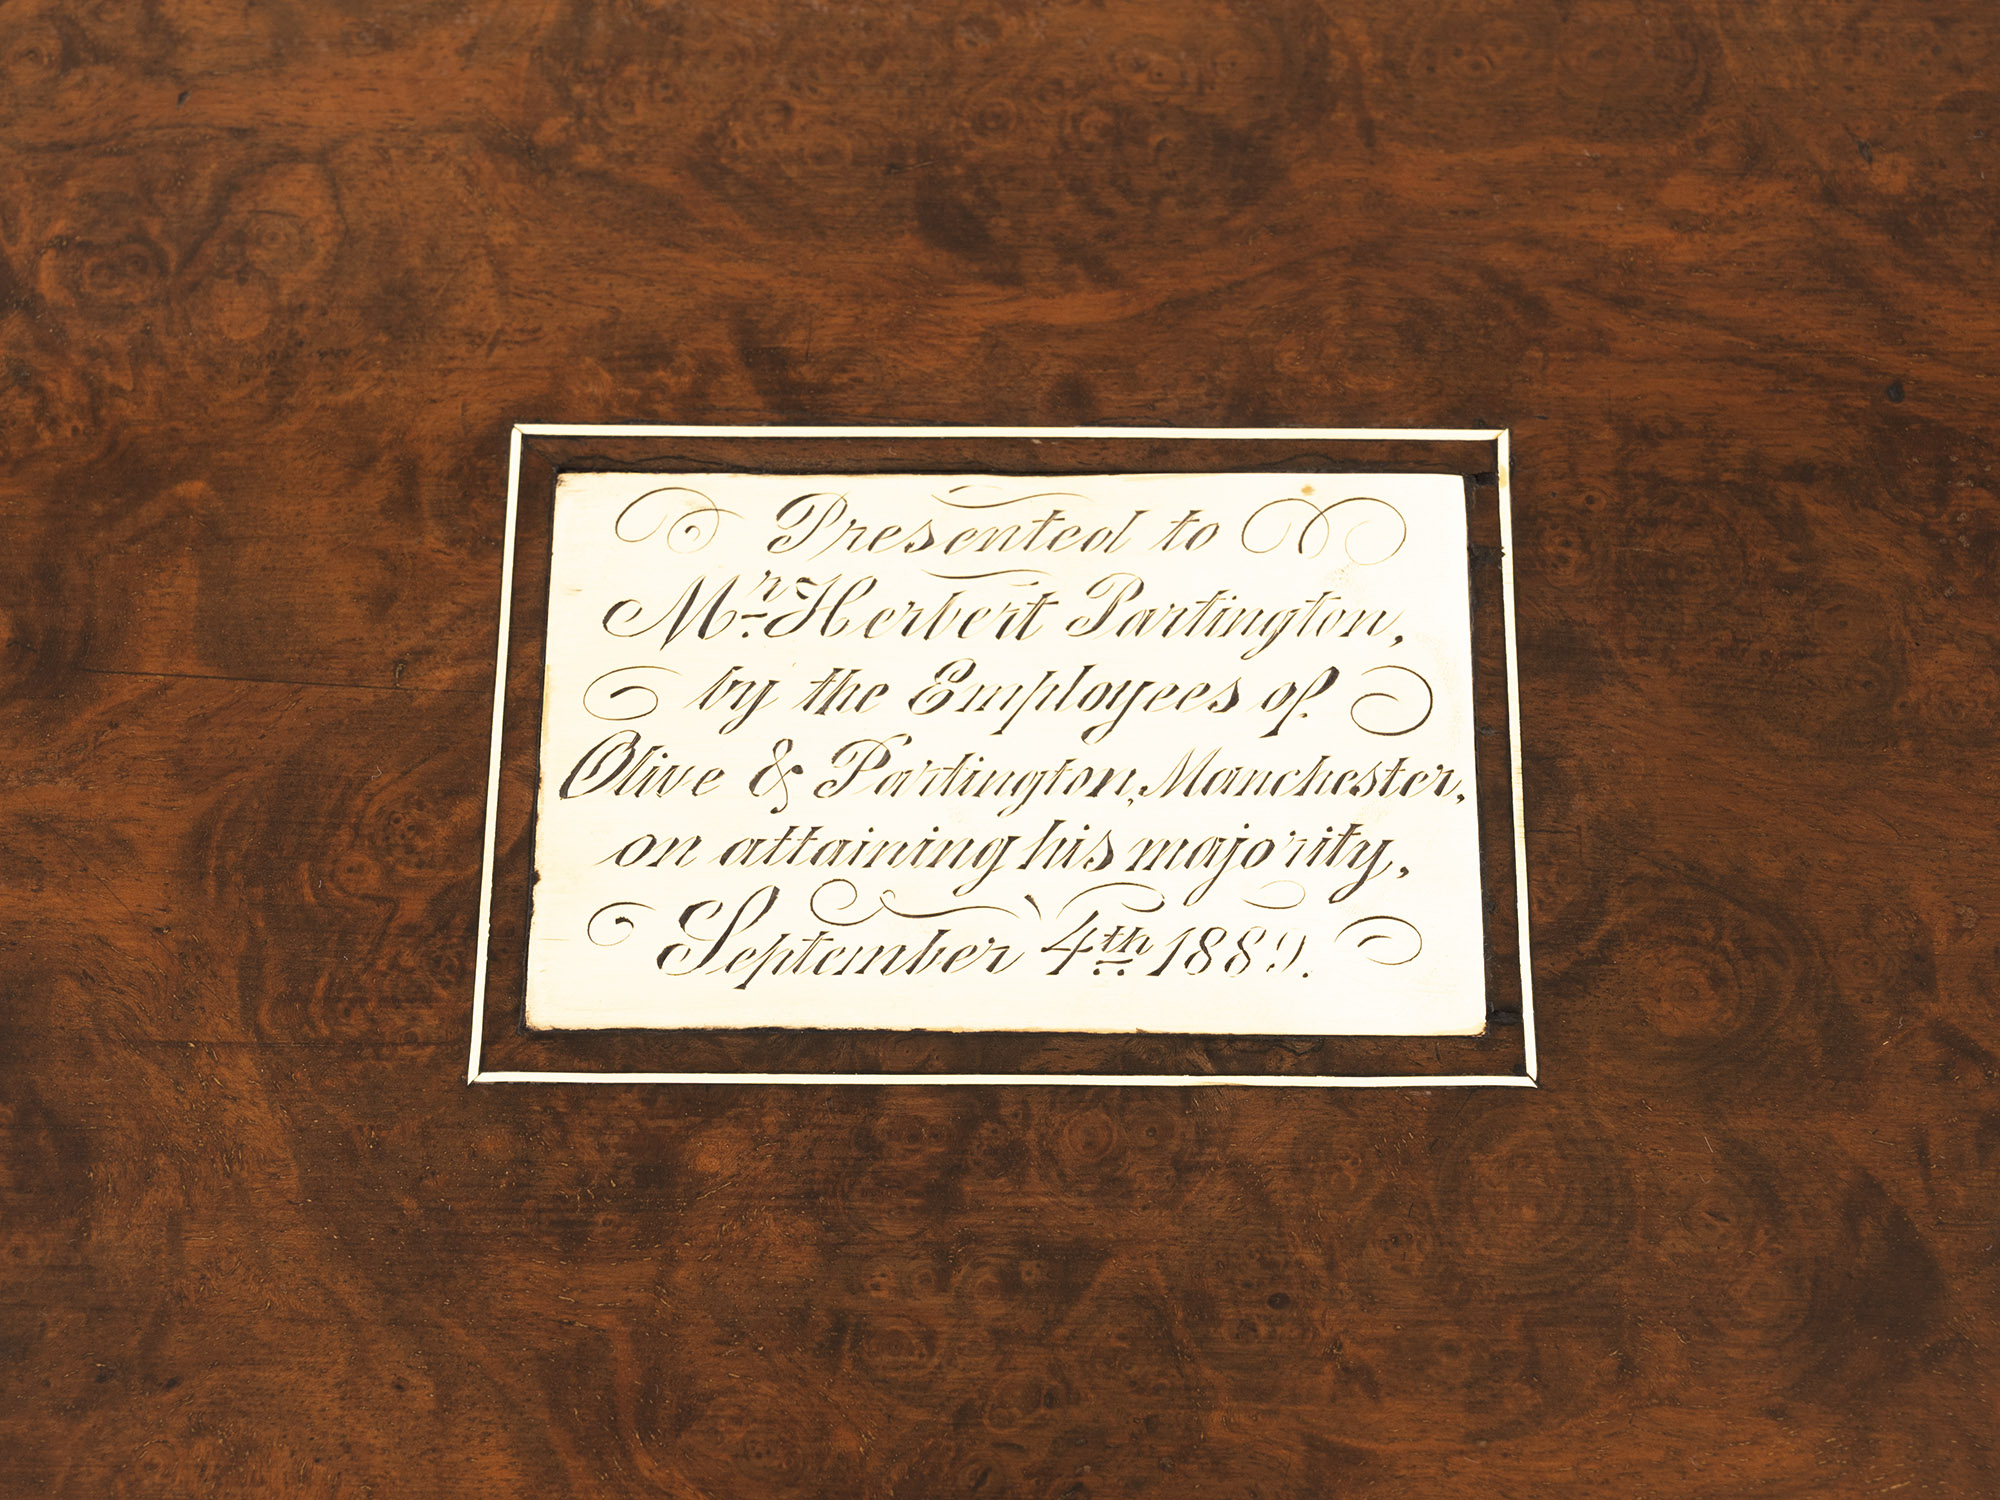 Presented to
Mr. Herbert Partington,
by the Employees of
Olive & Partington, Manchester,
on attaining his majority,
September 4th 1889.